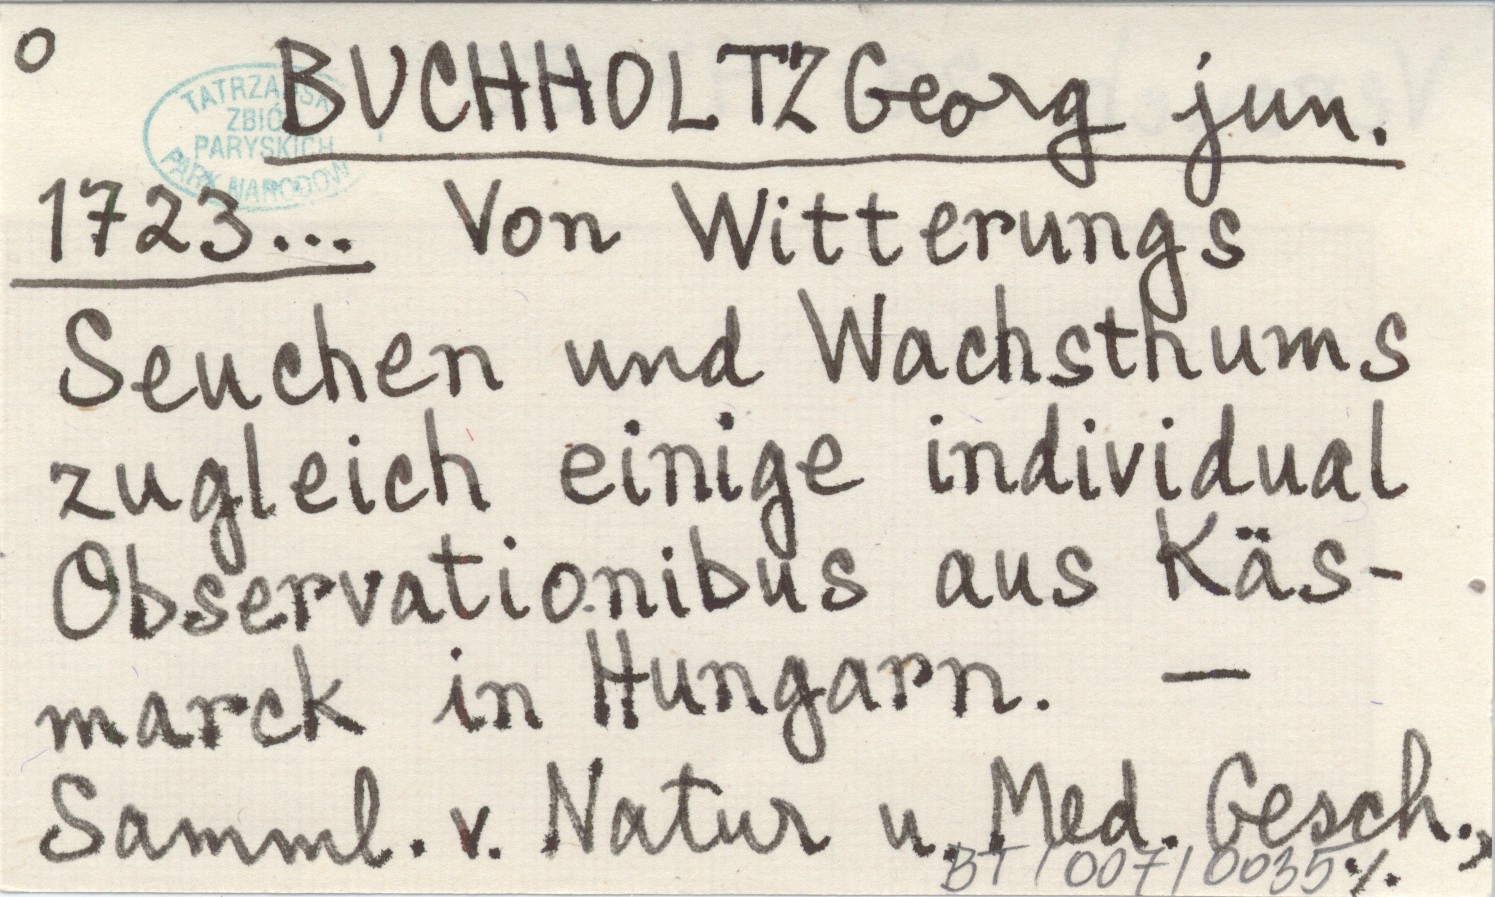 O
BUCHHOLTZ Georg jun.
TATRZAŃSKI
ZBIÓR
PARYSKICH
PARK NARODOWY
1723... Von Witterungs
Seuchen und Wachsthums
zugleich einige individual
Observationibus aus Käs-
marck in Hungarn. —
Samml. v. Natur u. Med. Gesch.,
BT/007/0035 ./.